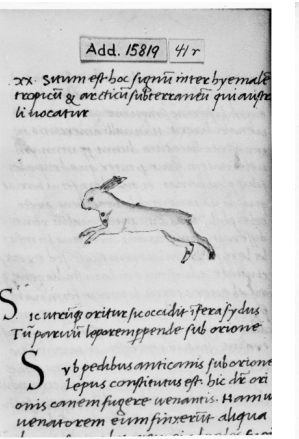 Add. 15819 41 r
xx. Situm est hoc signũ inter hyemalẽ
tropicũ & arcticũ subterraneũ qui austr
li uocatur
Sic utrũq; oritur sic occidit
Tũ paruũ leporem perpende sub orione
Svb pedibus anticanis sub orione
Lepus constitutus est hic dr̃ ori
onis canem fugere uenantis. Nam u
uenatorem eum finxerũt aliqua